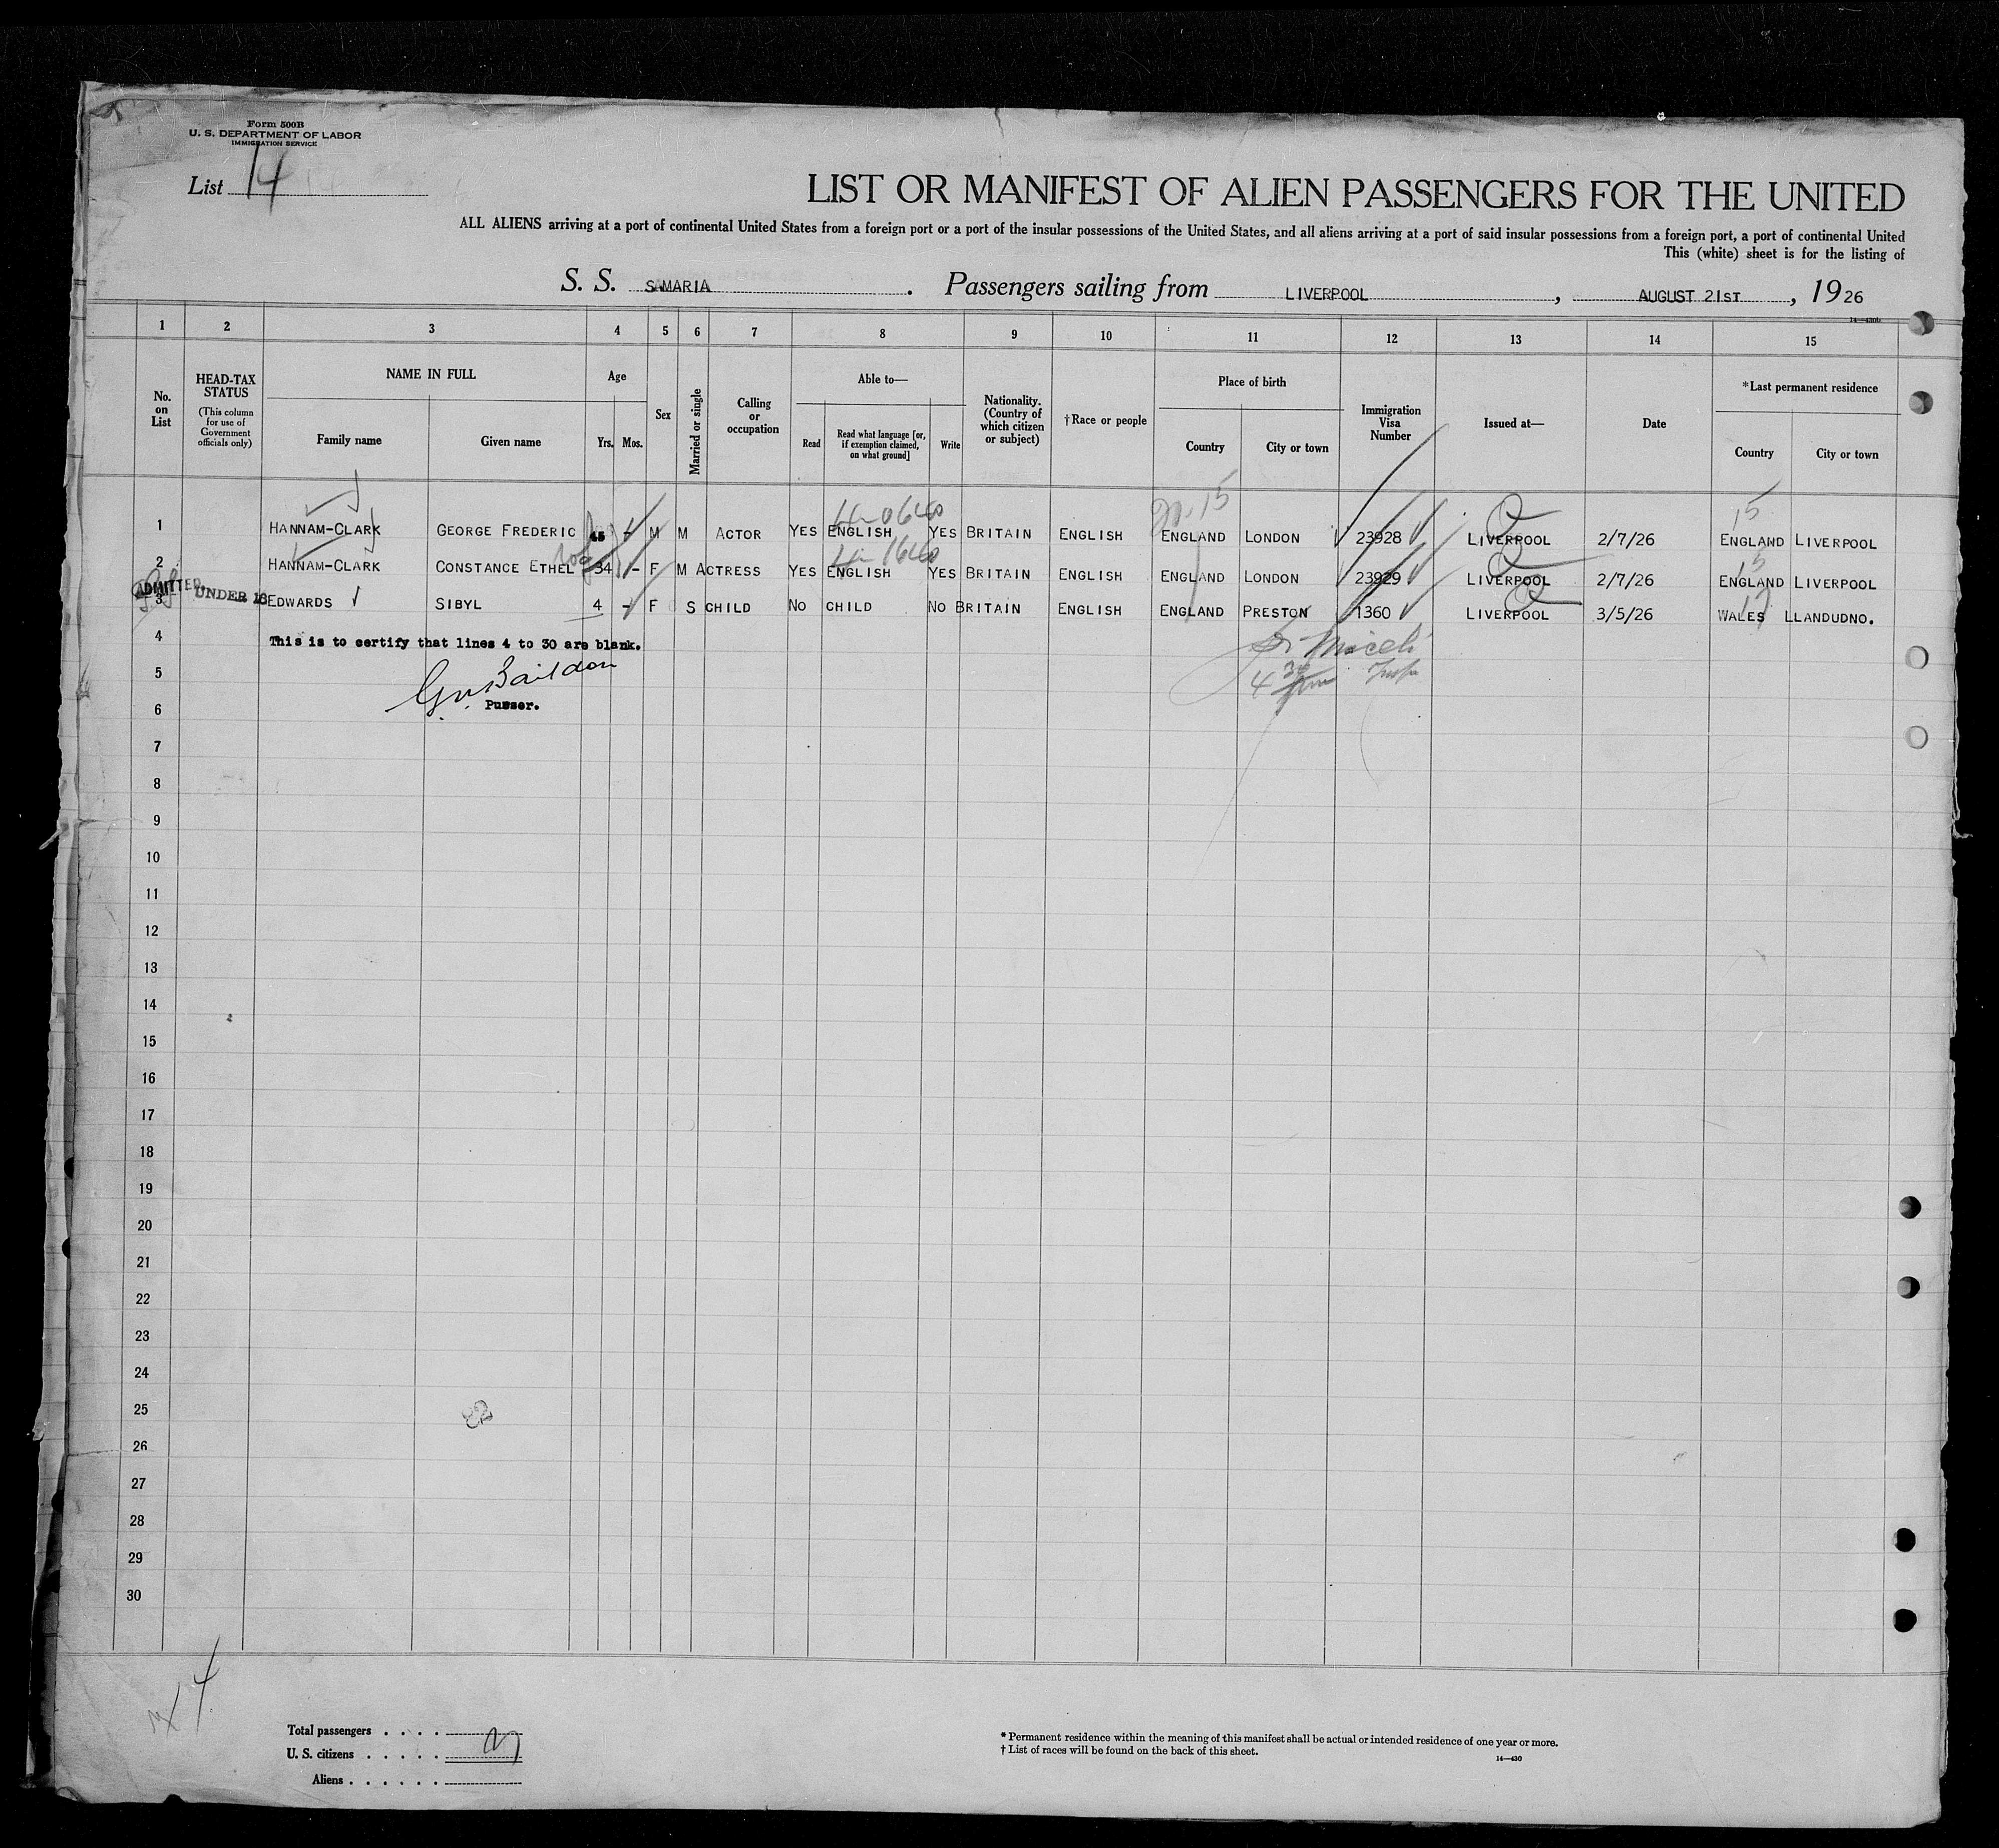 Form 500B
U. S. DEPARTMENT OF LABOR
IMMIGRATION SERVICE
List 14
LIST OR MANIFEST OF ALIEN PASSENGERS FOR THE UNITED
ALL ALIENS arriving at a port of continental United States from a foreign port or a port of the insular possessions of the United States, and all aliens arriving at a port of said insular possessions from a foreign port, a port of continental United
This (white) sheet is for the listing of
S. S. SAMARIA. Passengers sailing from LIVERPOOL, AUGUST 21ST, 1926
14—430b
1 2 3 4 5 6 7 8 9 10 11 12 13 14 15
No. on List
HEAD-TAX STATUS (This column for use of Government officials only)
NAME IN FULL
Family name Given name
Age
Yrs. Mos.
Sex
Married or single
Calling or occupation
Able to—
Read
Read what language [or, if exemption claimed, on what ground]
Write
Nationality. (Country of which citizen or subject)
†Race or people
Place of birth
Country City or town
Immigration Visa Number
Issued at—
Date
*Last permanent residence
Country City or town
20-15 15
1 HANNAM-CLARK GEORGE FREDERIC 45 - M M ACTOR YES ENGLISH YES BRITAIN ENGLISH ENGLAND LONDON 23928 LIVERPOOL 2/7/26 ENGLAND LIVERPOOL
15
2 HANNAM-CLARK CONSTANCE ETHEL 34 - F M ACTRESS YES ENGLISH YES BRITAIN ENGLISH ENGLAND LONDON 23929 LIVERPOOL 2/7/26 ENGLAND LIVERPOOL
ADMITTED UNDER 18
3 EDWARDS SIBYL 4 - F S CHILD NO CHILD NO BRITAIN ENGLISH ENGLAND PRESTON 1360 LIVERPOOL 3/5/26 WALES LLANDUDNO.
4 This is to certify that lines 4 to 30 are blank.
5
6 Purser.
7
8
9
10
11
12
13
14
15
16
17
18
19
20
21
22
23
24
25
26
27
28
29
30
Total passengers . . . .
U. S. citizens . . . . .
Aliens . . . . . .
* Permanent residence within the meaning of this manifest shall be actual or intended residence of one year or more.
† List of races will be found on the back of this sheet.
14—430